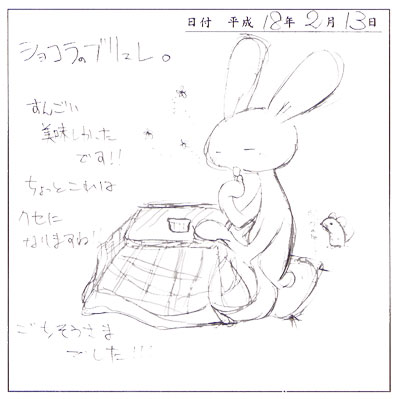 日付 平成 18年 2月 13日
ショコラのブリュレ。
すんごい
美味しかった
です!!
ちょっとこれは
クセに
なりますね!
ごちそうさま
でした!!!